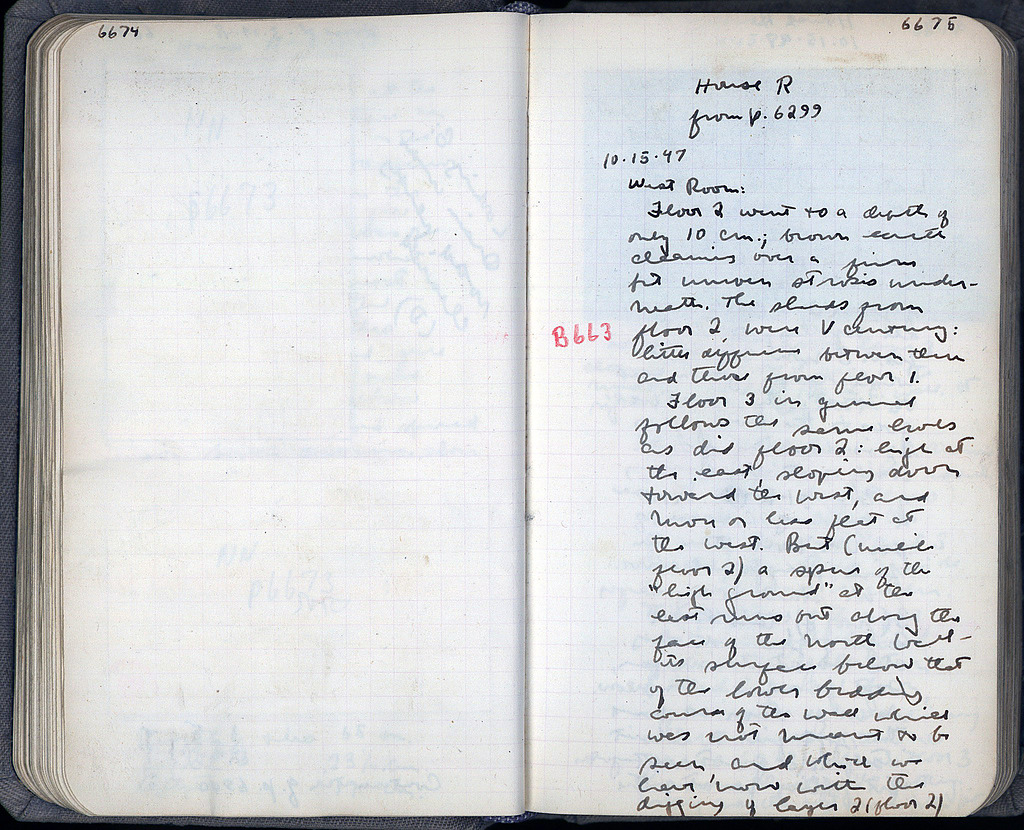 6674
6675
House R
from p. 6299
10.15.47
West Room:
Floor 2 went to a depth of
only 10 cm.; brown earth
cleaning over a firm
but uneven strosis under-
neath. The sherds from
B663
floor 2 were V century:
little difference between them
and those from floor 1.
Floor 3 in general
follows the same lines
as did floor 2: high at
the east, sloping down
toward the west, and
more or less flat at
the west. But (unlike
floor 2) a spur of the
"high ground" at the
east runs out along the
face of the north wall -
its surface below that
of the lower bedding
course of the wall which
was not meant to be
seen, and which we
have now with the
digging of layer 2 (floor 2)